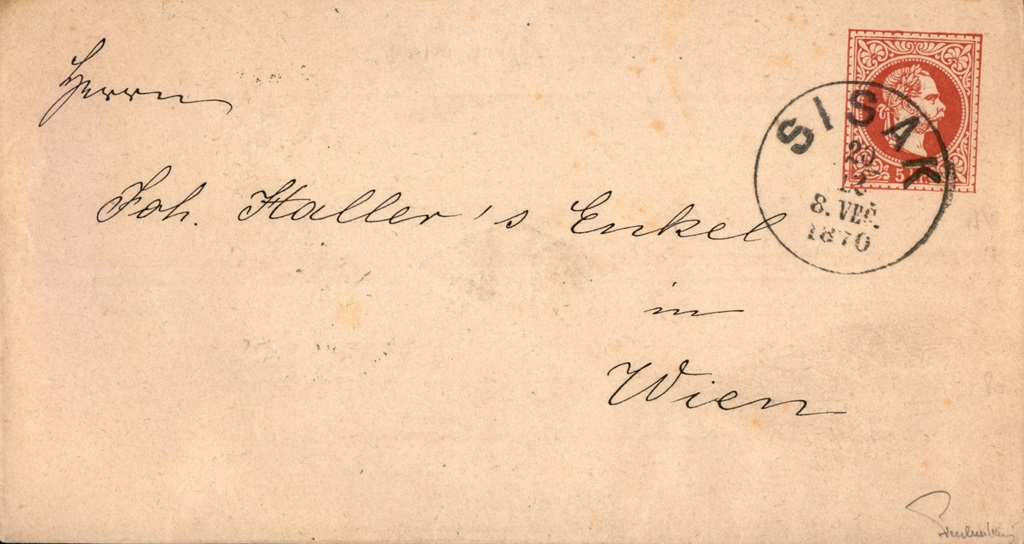 Herrn
Joh. Haller's Enkel
in
Wien
SISAK
20
12
8. VEČ.
1870
5